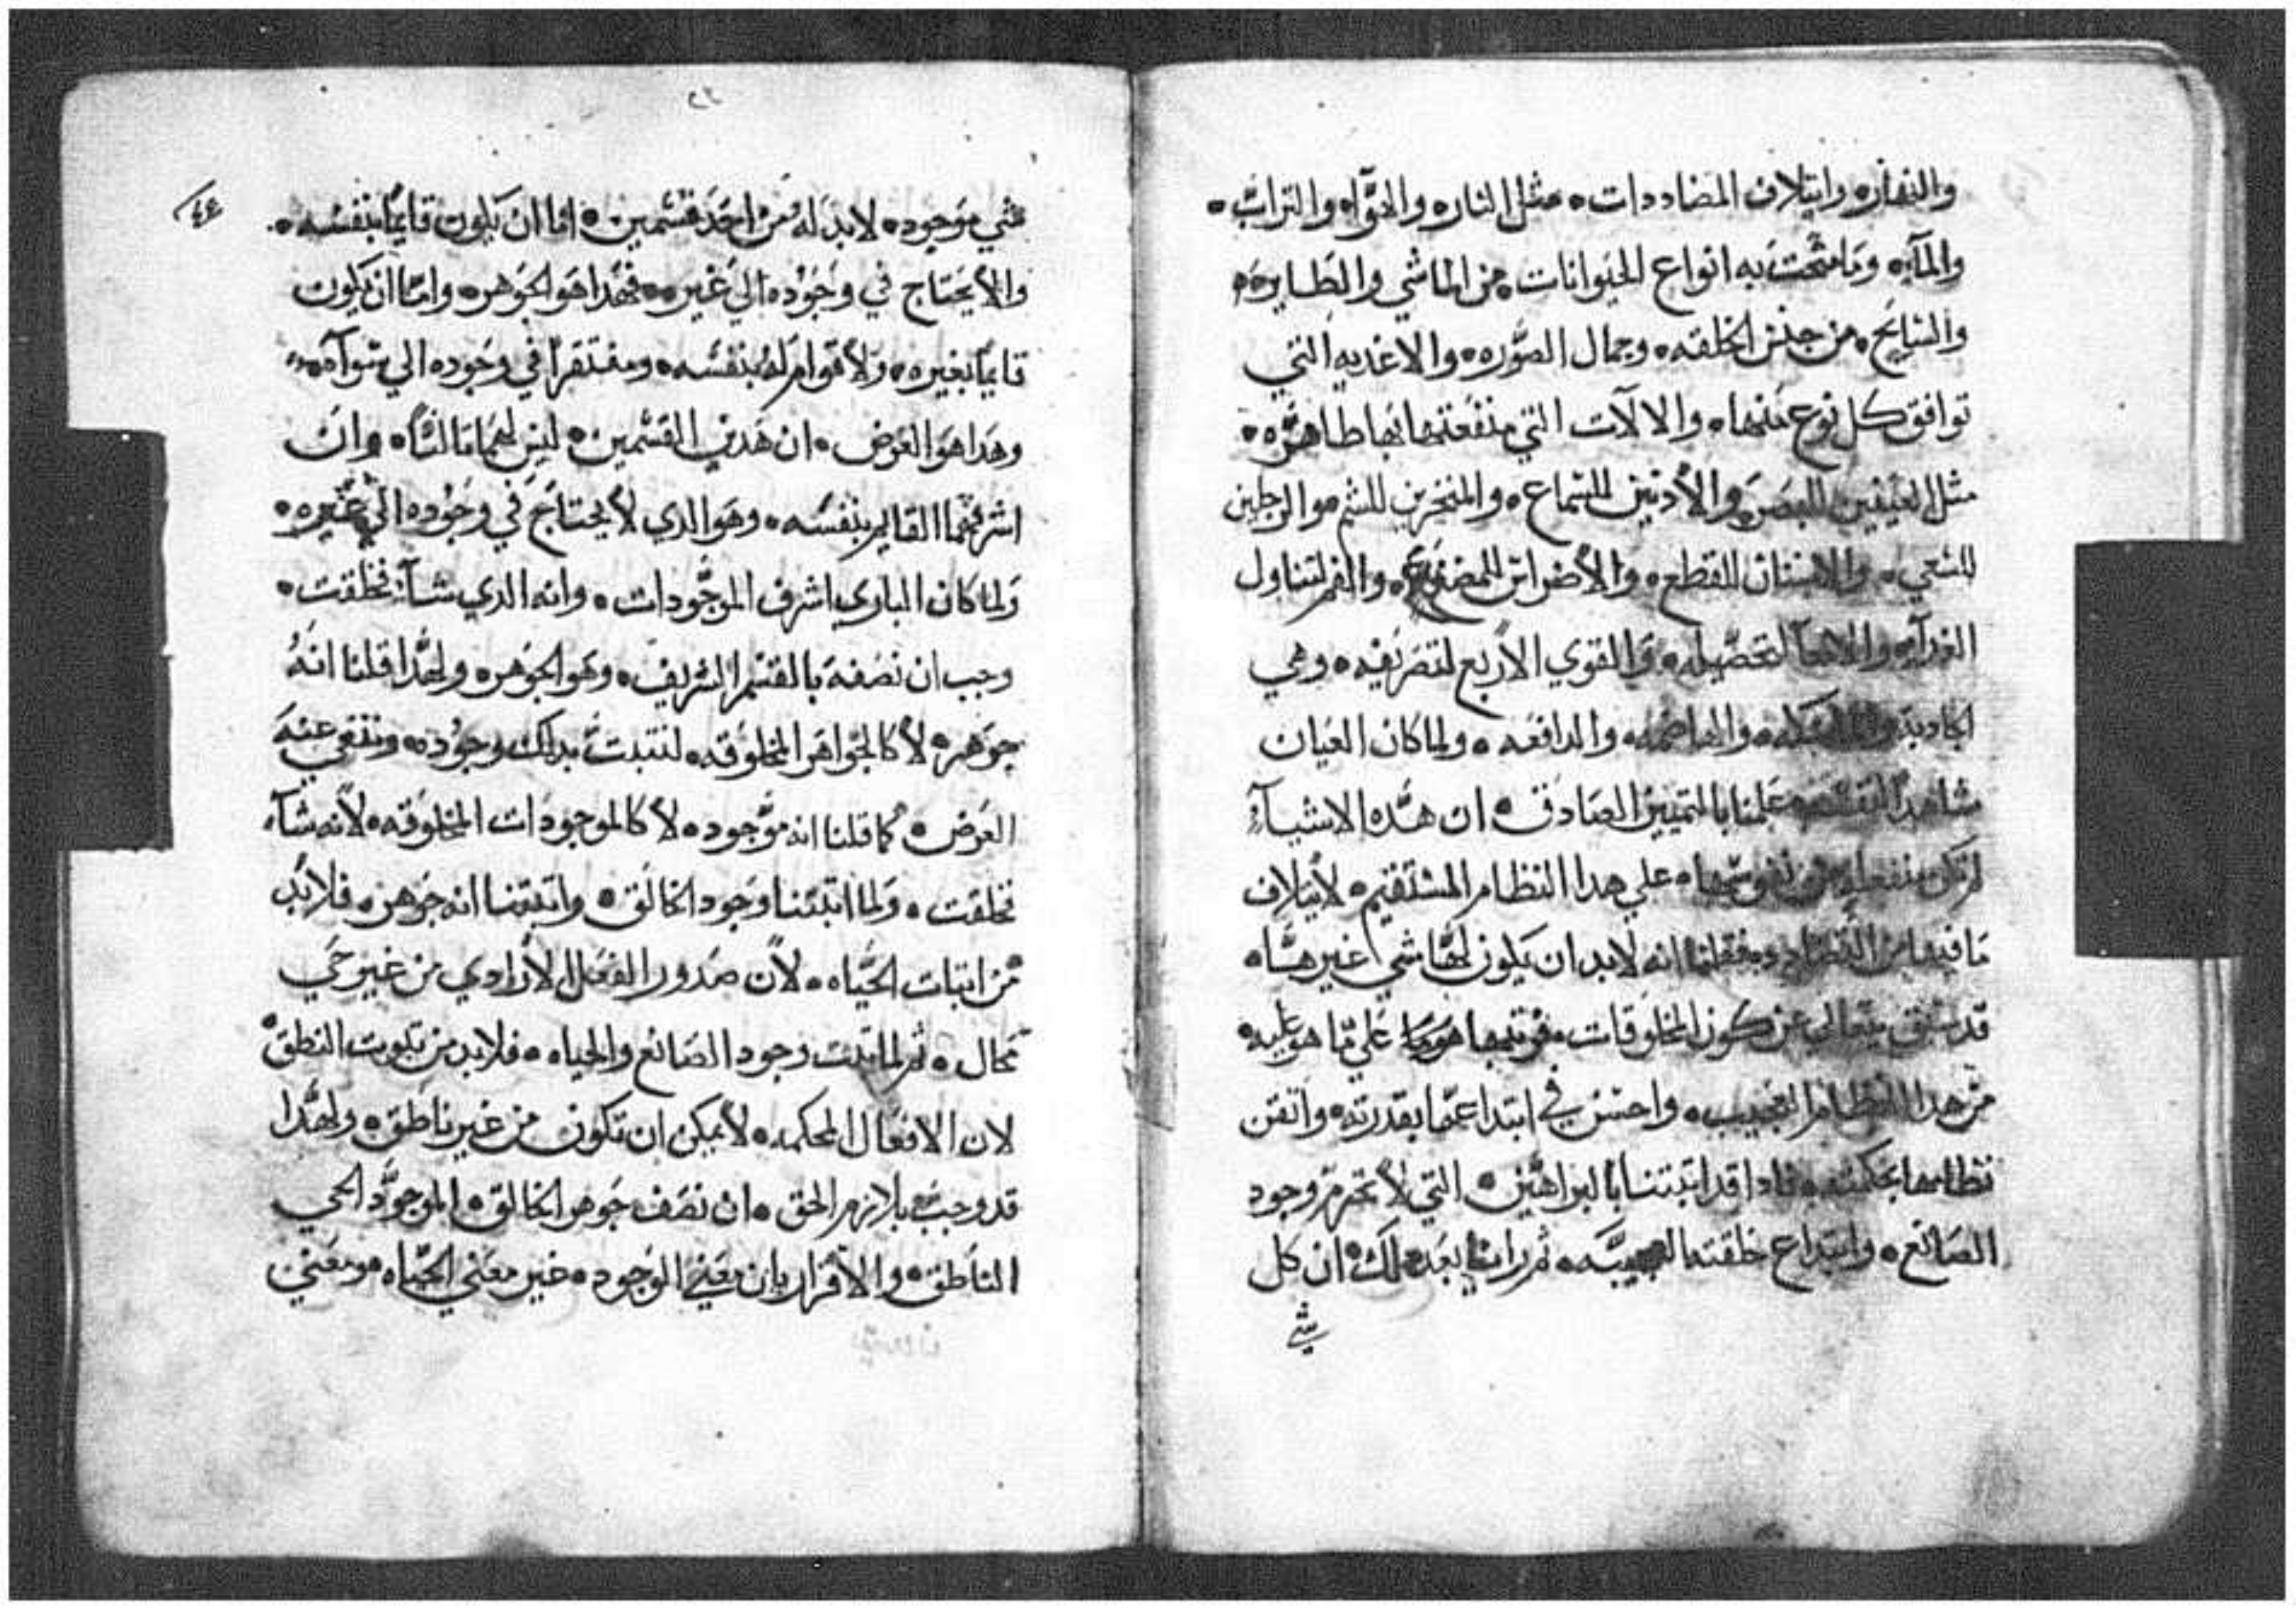 والنهار﻿ه وايتلاف المضاددات ه مثل النار ه والهوآ ه والتراب ه
والمآ ه وما منحت به انواع الحيوانات ه من الماشي والطاير ه
والسابح ه من جنس الخلقه ه وجمال الصوره ه والاغديه التي
توافق كل نوع منها ه والالات التي منفعتها بها ظاهره ه
مثل العينين للبصر والأدنين للسماع ه والمنخرين للشم ه والرجلين
للسعي ه والاسنان للقطع ه والأضراس للمضغ ه والفم لتناول
الغدآ ه والامعآ لتحصيله ه والقوي الأربع لتصريفه ه وهي
الجادبه والماسكه ه والهاضمه ه والدافعه ه ولما كان العيان
شاهداً علمنا بالتمييز الصادق ه ان هده الاشيآء
لم تكن منفعله من نفوسها ه علي هدا النظام المستقيم ه لأيتلاف
ما فيها من التضادد ه فقلنا انه لابد ان يكون لها شي غيرها ه
قد سبق متعالي عن كون المخلوقات ه علي ما هو عليه ه
من هدا النظام العجيب ه واحسن في ابتداعها بقدرته ه واتقن
نظامها بحكمته ه فادا قد اتبتنا بالبراهين ه التي لا تخرم وجود
الصانع ه وابتداع خلقته ه ثم راينا بعد دلك ان كل
شي
٤٤
شي موجود ه لابد له من احد قسمين ه اما ان يكون قايماً بنفسه ه
والأ يحتاج في وجوده الي غيره ه فهدا هو الجوهر ه واما ان يكون
قايماً بغيره ه ولا قوام له بنفسه ه ومفتقراً في وجوده الي سوآه ه
وهدا هو العرض ه ان هدين القسمين ه ليس لهما تالتاً ه وان
اشرفهما القايم بنفسه ه وهو الدي لا يحتاج في وجوده الي غيره ه
ولما كان الباري اشرف الموجودات ه وانه الدي شآ فخلقت ه
وجب ان نصفه بالقسم الشريف ه وهو الجوهر ه ولهدا قلنا انه
جوهر ه لا كالجواهر المخلوقه ه لنتبت بدلك وجوده ه وننفي عنه
العرض ه كما قلنا انه موجود ه لا كالموجودات المخلوقه ه لأنه شآ ه
فخلقت ه ولما اتبتنا وجود الخالق ه واتبتنا انه جوهر ه فلابد
من اتبات الحياه ه لأن صدور الفعل الأرادي من غير حي
محال ه ثم لما تبت وجود الصانع والحياه ه فلابد من تبوت النطق ه
لان الافعال المحكمه ه لا يمكن ان تكون من غير ناطق ه ولهدا
قد وجب بلازم الحق ه ان نصف جوهر الخالق ه الموجود الحي
الناطق ه والأقرار بان معني الوجود ه غير معني الحياه ه ومعني